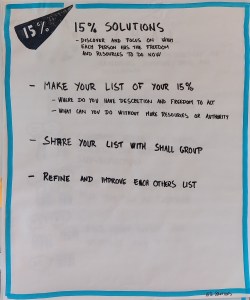 15%
15% SOLUTIONS
- DISCOVER AND FOCUS ON WHAT
EACH PERSON HAS THE FREEDOM
AND RESOURCES TO DO NOW
- MAKE YOUR LIST OF YOUR 15%
- WHERE DO YOU HAVE DISCRETION AND FREEDOM TO ACT
- WHAT CAN YOU DO WITHOUT MORE RESOURCES OR AUTHORITY
- SHARE YOUR LIST WITH SMALL GROUP
- REFINE AND IMPROVE EACH OTHERS LIST